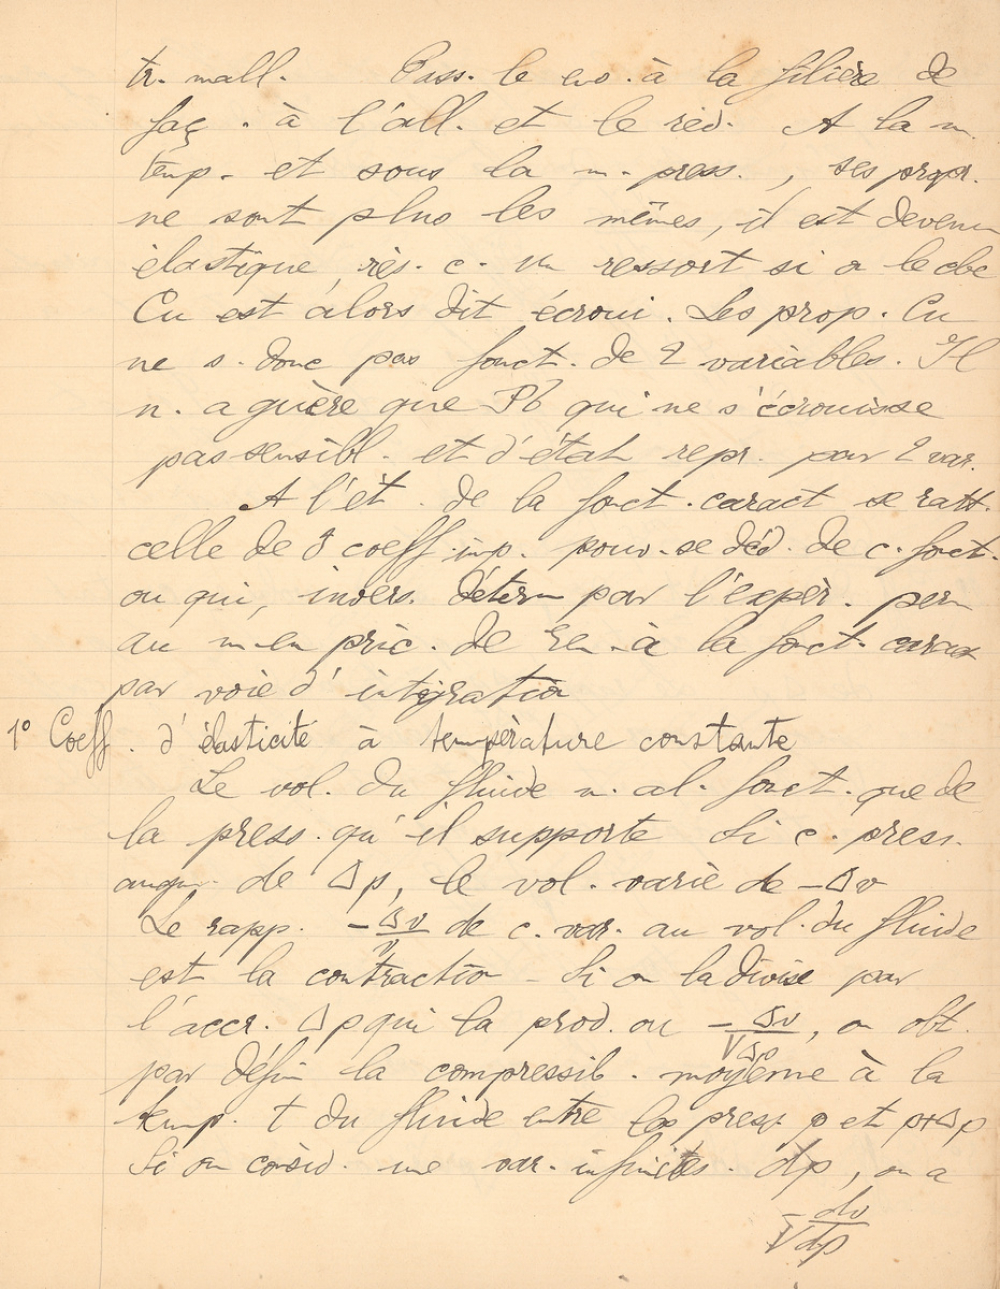 tr. mall. Pass. le ens. à la filière de
faç. à l'all. et le red. A la m.
temp. et sous la m. press., ses propr.
ne sont plus les mêmes, il est devenu
élastique, rés. c. un ressort si on le cbe
Cu est alors dit écroui. Les prop. Cu
ne s. donc pas fonct. de 2 variables. Il
n. a guère que Pb qui ne s'écrouisse
pas sensibl. et d'état repr. par 2 var.
A l'ét. de la fonct. caract se ratt.
celle de 8 coeff. imp. pouv. se déd. de c. fonct.
ou qui, invers. déterm par l'expér. perm
au m. en princ. de rem. à la fonct. caract
par voie d'intégration
1° Coeff. d'élasticité à température constante
Le vol. du fluide n. al. fonct. que de
la press. qu'il supporte Si c. press.
augm. de Δp, le vol. varie de -Δv
Le rapp. -Δv/v de c. var. au vol. du fluide
est la contraction - Si on la divise par
l'accr. Δp qui la prod. ou -Δv/VΔp, on obt.
par défin la compressib. moyenne à la
temp. t du fluide entre les press. p et p+Δp
Si on consid. une var. infinités. dp, on a
-dv/Vdp